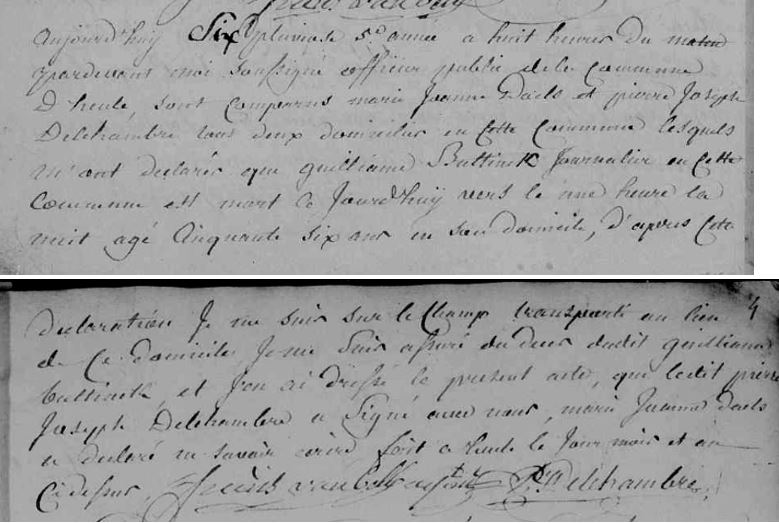 aujourd'huy Six pluviose 5e année a huit heures du matin
pardevant moi soussigné officier public de la Commune
D heule sont comparus marie Joanne Daels et pierre Joseph
Delchambre tous deux domiciliés en Cette Commune lesquels
m'ont declarés que guilliaume Buttinck Journalier en Cette
Commune est mort Ce Jourd'huy vers le une heure la
nuit agé Cinquante six ans en son domicile, d'apres Cette
declaration Je me suis sur le Champ transporté au lieu 4
de Ce domicile Je me suis assuré du deces dudit guilliaume
buttinck, et J'en ai dressé le present acte, que ledit pierre
Joseph Delchambre a Signé avec nous, marie Joanna daels
a declaré ne savoir ecrire fait a heule le Jour mois et an
Cidessus,
P. J. Delchambre,